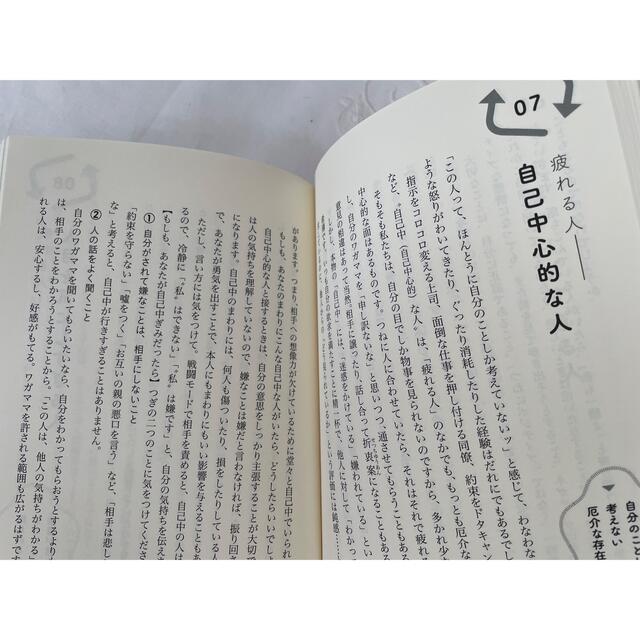 07
疲れる人
自己中心的な人
「この人って、ほんとうに自分のことしか考えていないッ」と感じて、わなわな
ような怒りがわいてきたり、ぐったり消耗したりした経験はだれにでもあるでし
指示をコロコロ変える上司、面倒な仕事を押し付ける同僚、約束をドタキャン
など、“自己中（自己中心的）な人”は、「疲れる人」のなかでも、もっとも厄介な
そもそも私たちは、自分の目でしか物事を見られないのですから、多かれ少
中心的な面はあるものです。つねに人に合わせていたら、それはそれで疲れ
し、自分のワガママを「申し訳ないな」と思いつつ、通させてもらうこともある
意見の相違はあって当然、相手に譲ったり、話し合って折衷案になることもある
しかし、本物の「自己中」には、「迷惑をかけている」「嫌われている」
自分の欲求を満たすことに精一杯で、他人に対して「わかっ
という評価には鈍感……
自分のこと
考えない
厄介な存在
08
があります。つまり、相手への想像力が欠けているために堂々と自己中でいられ
もしも、あなたのまわりにこんな自己中な人がいたら、どうしたらいいでしょ
自己中心的な人と接するときは、自分の意思をしっかり主張することが大切で
は人の気持ちを理解していないので、嫌なことは嫌だと言わなければ、振り回さ
になります。自己中のまわりには、何人も傷ついたり、損をしたりしている人
で、あなたが勇気を出すことで、本人にもまわりにもいい影響を与えることもあ
ただし、言い方には気をつけて。戦闘モードで相手を責めると、自己中の人は
るので、冷静に「“私”はできない」「“私”は嫌です」と、自分の気持ちを伝えさ
【もしも、あなたが自己中ぎみだったら】つぎの二つのことに気をつけてくださ
① 自分がされて嫌なことは、相手にしないこと
「約束を守らない」「嘘をつく」「お互いの親の悪口を言う」など、「相手は悲し
な」と考えると、自己中が行きすぎることはありません。
② 人の話をよく聞くこと
自分のワガママを聞いてもらいたいなら、自分をわかってもらおうとするより
は、相手のことをわかろうとすることから。「この人は、他人の気持ちがわかる」
れる人は、安心するし、好感がもてる。ワガママを許される範囲も広がるはずです